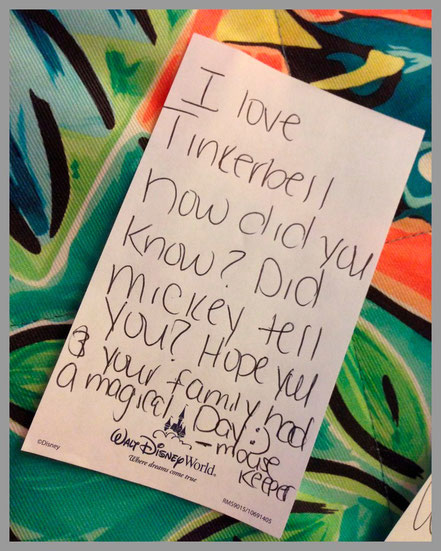 I love
Tinkerbell
how did you
know? Did
mickey tell
you? Hope you
& your family had
a magical Day :)
- mouse
keeper
WALT DISNEY World.
Where dreams come true
©Disney
RMS9015/10691405